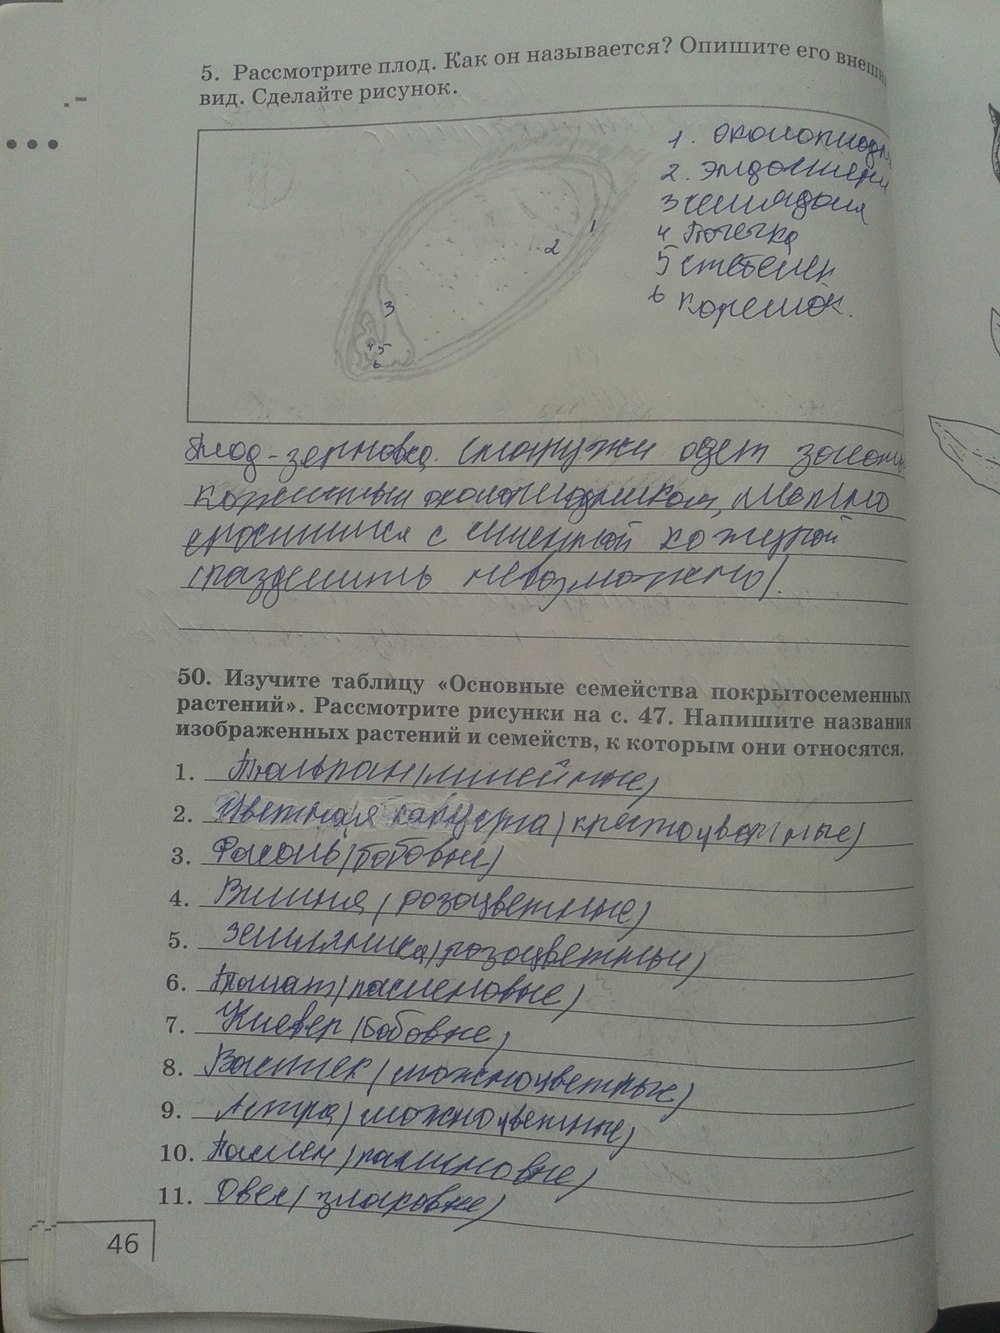 5. Рассмотрите плод. Как он называется? Опишите его внешн
вид. Сделайте рисунок.
1. околоплодн
2. эндосперм
3 семядоля
4 Почечка
5 стебелек
6 корешок.
1
2
3
4 5
6
Плод-зерновка. Снаружи одет
кожистым околоплодником, плотно
сросшимся с семенной кожурой
(разделить невозможно).
50. Изучите таблицу «Основные семейства покрытосеменных
растений». Рассмотрите рисунки на с. 47. Напишите названия
изображенных растений и семейств, к которым они относятся.
1. Тюльпан (лилейные)
2. Цветная капуста (крестоцветные)
3. Фасоль (бобовые)
4. Вишня (розоцветные)
5. Земляника (розоцветные)
6. Томат (пасленовые)
7. Клевер (бобовые)
8. Василек (сложноцветные)
9. Астра (сложноцветные)
10. Паслен (пасленовые)
11. Овес (злаковые)
46